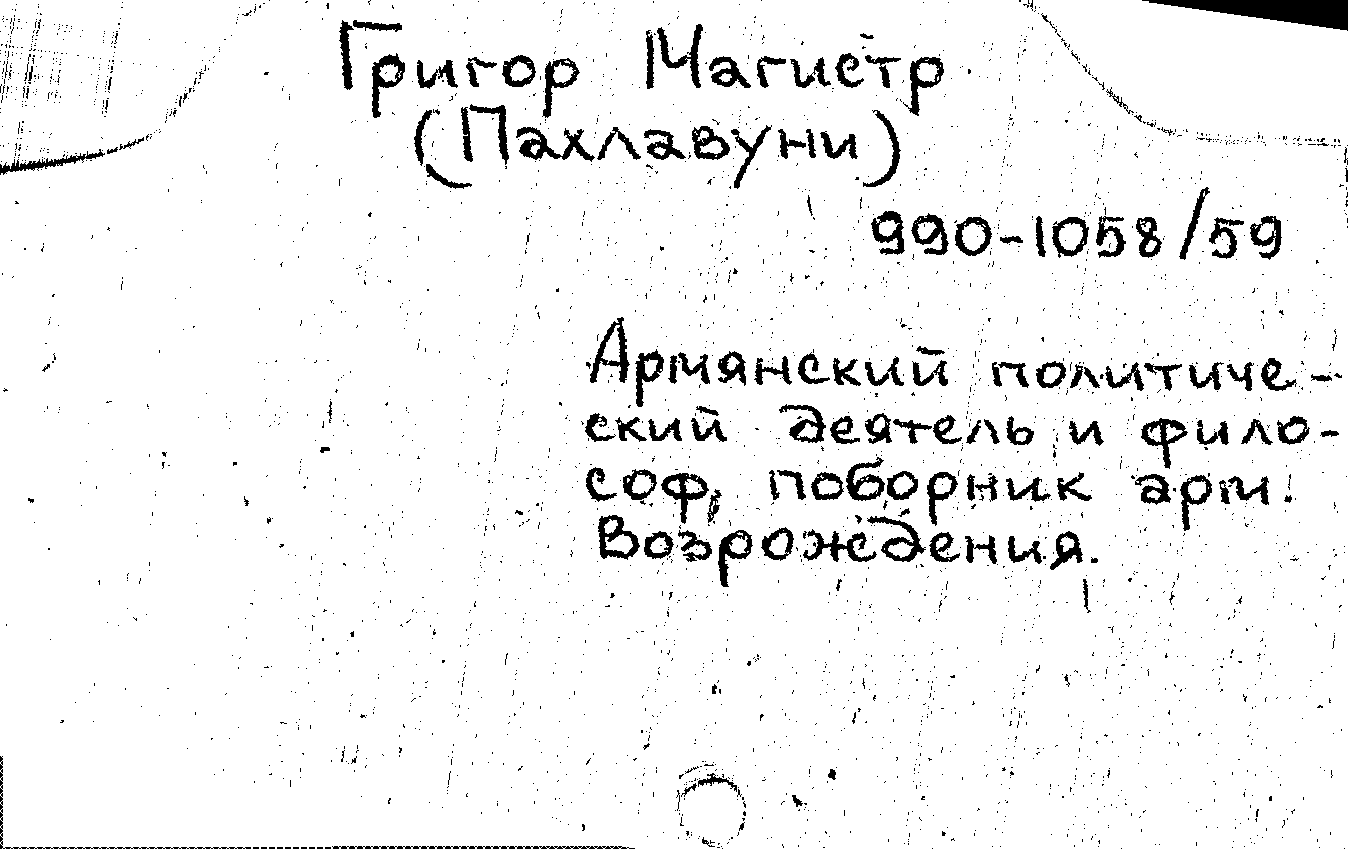 Григор Магистр
(Пахлавуни)
990-1058/59
Армянский политиче-
ский деятель и фило-
соф, поборник арм.
Возрождения.